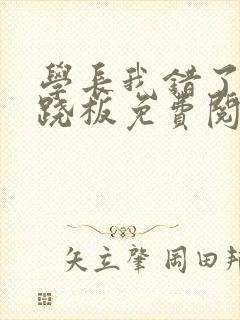 學長我錯了
跷板免費閱
矢立肇 岡田邦